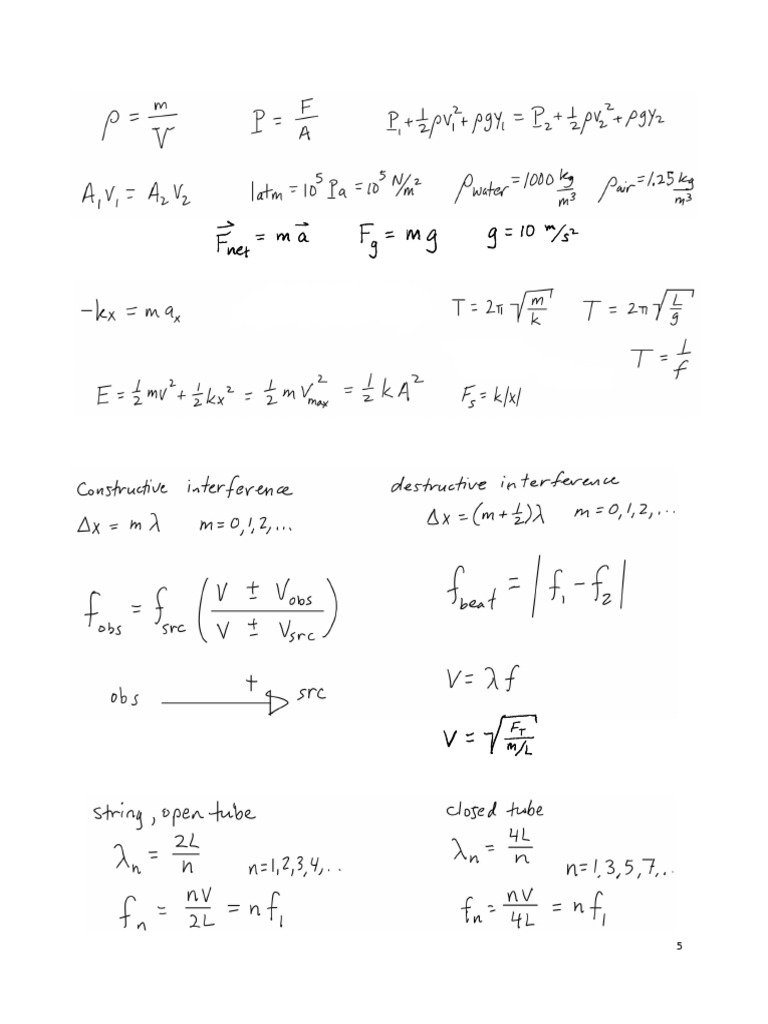 ρ = m/V P = F/A P₁+½ρv₁²+ρgy₁ = P₂+½ρv₂²+ρgy₂
A₁v₁ = A₂v₂ 1atm = 10⁵ Pa = 10⁵ N/m² ρwater = 1000 kg/m³ ρair = 1.25 kg/m³
F⃗net = m a⃗ Fg = mg g = 10 m/s²
-kx = max T = 2π√(m/k) T = 2π√(L/g)
T = 1/f
E = ½mv² + ½kx² = ½mVmax² = ½kA² Fs = k|x|
Constructive interference destructive interference
Δx = mλ m=0,1,2,... Δx = (m+½)λ m=0,1,2,...
fobs = fsrc (V ± Vobs / V ± Vsrc) fbeat = |f₁-f₂|
V = λf
obs + src
V = √(FT/(m/L))
string, open tube closed tube
λn = 2L/n n=1,2,3,4,.. λn = 4L/n n=1,3,5,7,..
fn = nV/2L = nf₁ fn = nV/4L = nf₁
5